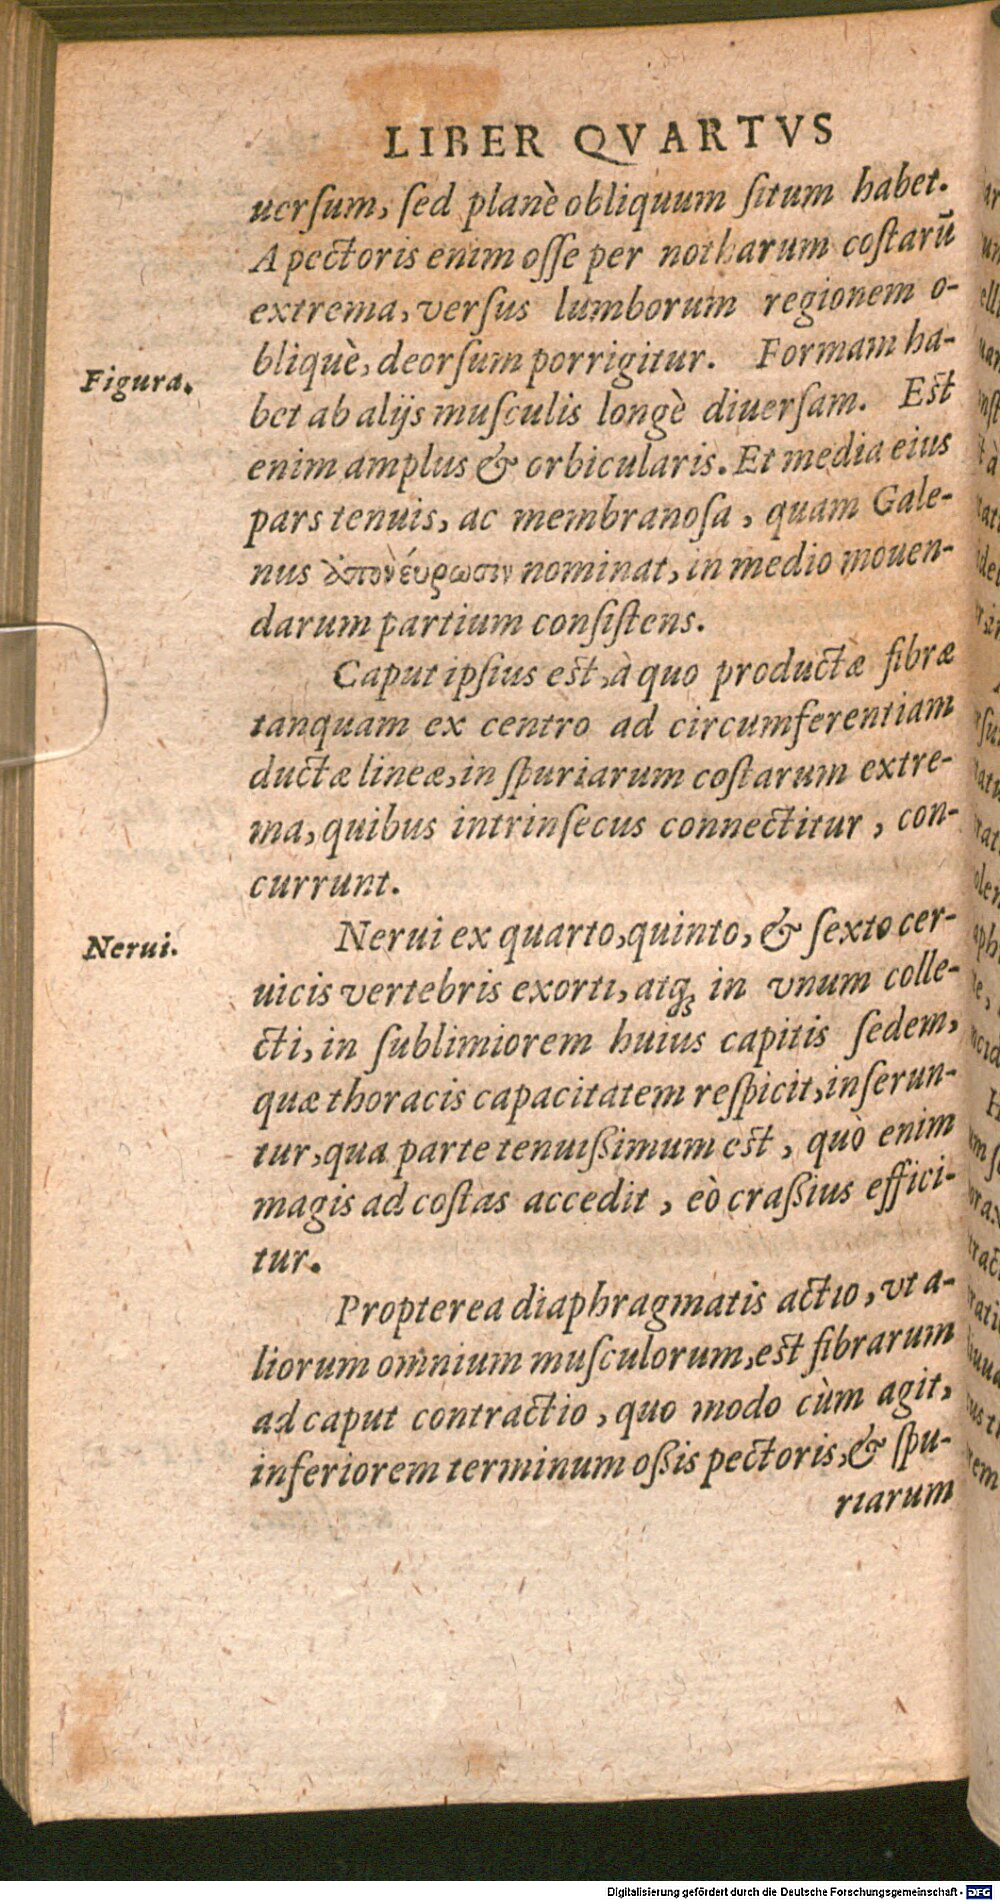 LIBER QVARTVS
uerſum, ſed planè obliquum ſitum habet.
A pectoris enim oſſe per notharum coſtarū
extrema, verſus lumborum regionem o-
bliquè, deorſum porrigitur. Formam ha-
Figura.
bet ab alijs muſculis longè diuerſam. Est
enim amplus & orbicularis. Et media eius
pars tenuis, ac membranoſa, quam Gale-
nus ἀπονέυρωσιν nominat, in medio mouen-
darum partium conſiſtens.
Caput ipſius est, à quo productæ fibræ
tanquam ex centro ad circumferentiam
ductæ lineæ, in ſpuriarum coſtarum extre-
ma, quibus intrinſecus connectitur, con-
currunt.
Nerui.
Nerui ex quarto, quinto, & ſexto cer-
uicis vertebris exorti, atq; in vnum colle-
cti, in ſublimiorem huius capitis ſedem,
quæ thoracis capacitatem reſpicit, inſerun-
tur, qua parte tenuißimum est, quò enim
magis ad coſtas accedit, eò craßius effici-
tur.
Propterea diaphragmatis actio, vt a-
liorum omnium muſculorum, est fibrarum
ad caput contractio, quo modo cùm agit,
inferiorem terminum oßis pectoris, & ſpu-
riarum
Digitalisierung gefördert durch die Deutsche Forschungsgemeinschaft - DFG